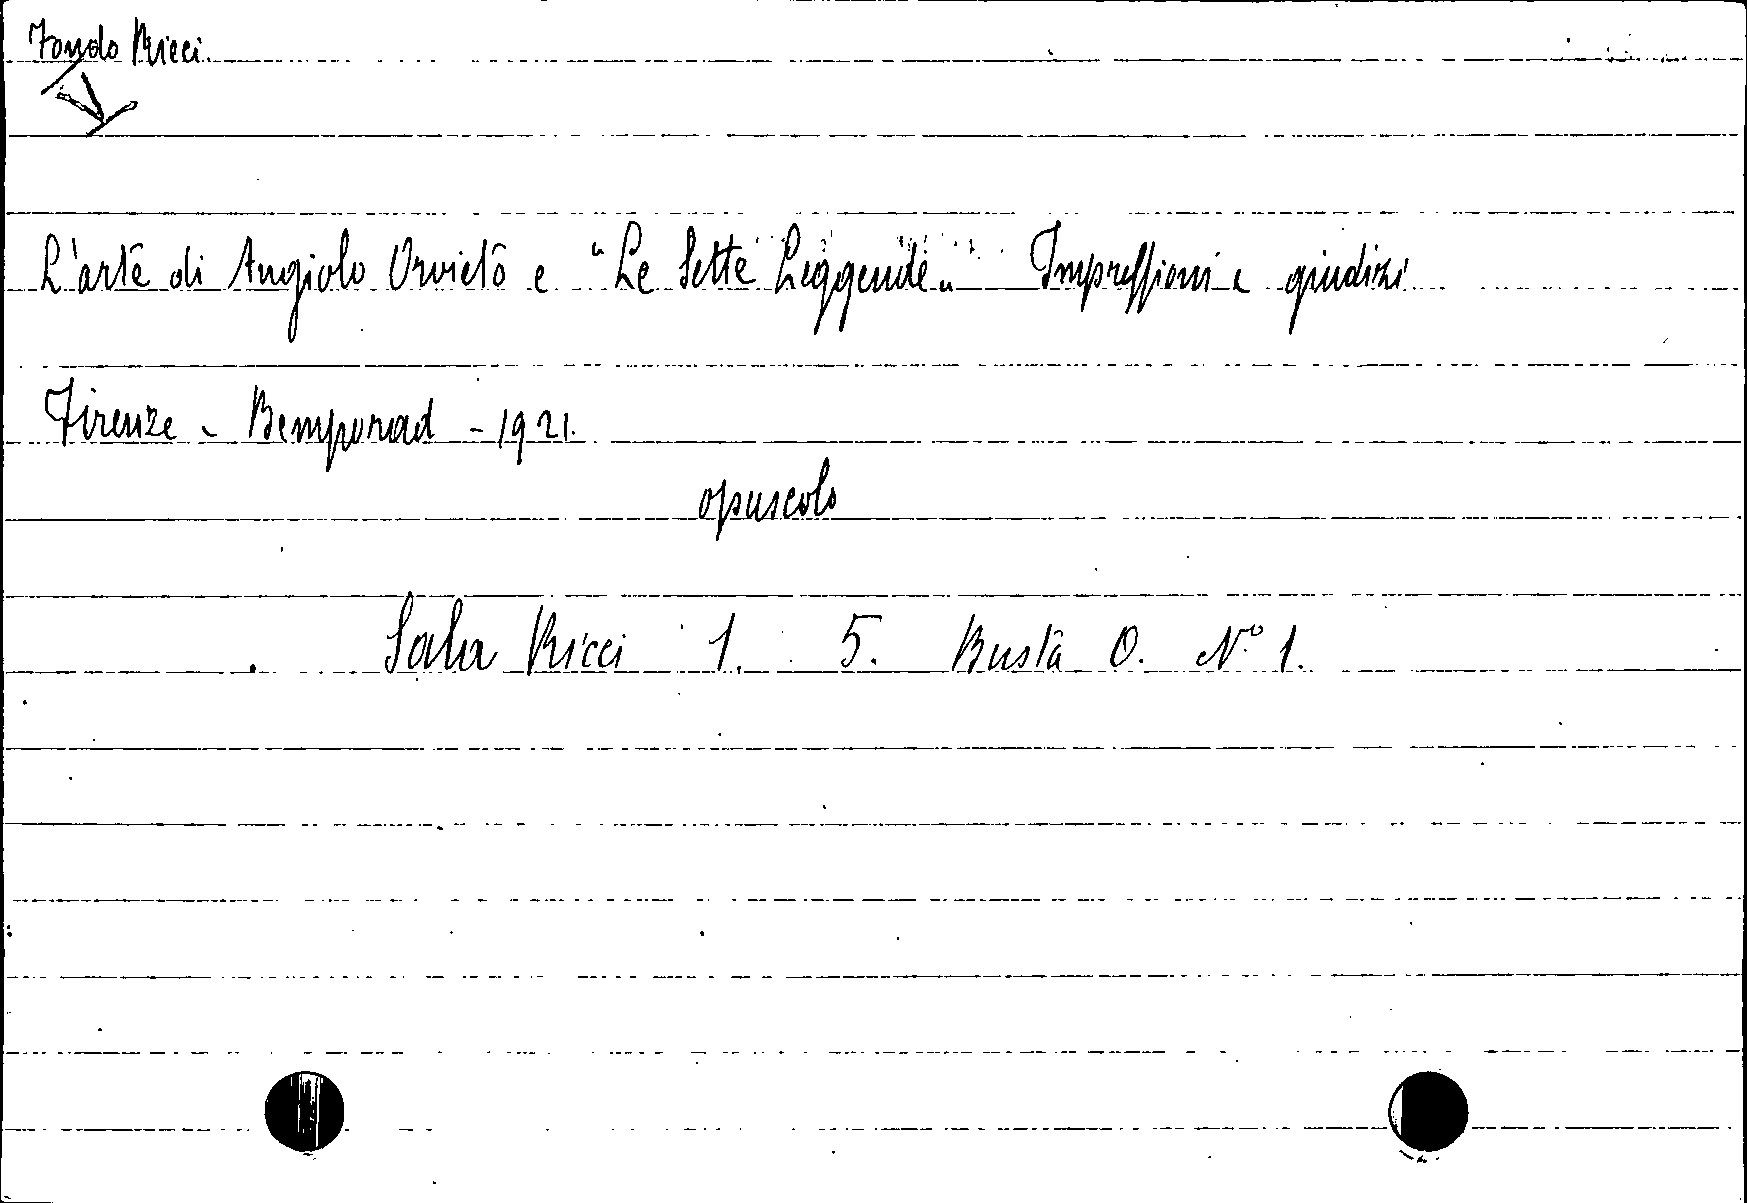 Fondo Ricci.
V
L'arte di Angiolo Orvieto e "Le Sette Leggende" Impressioni e giudizi
Firenze - Bemporad - 1921.
opuscolo
Sala Ricci 1. 5. Busta O. N° 1.